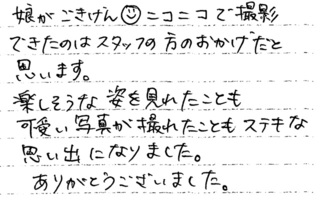 娘が ごきげん☺ニコニコで撮影
できたのはスタッフの方のおかげだと
思います。
楽しそうな姿を見れたことも
可愛い写真が撮れたこともステキな
思い出になりました。
ありがとうございました。